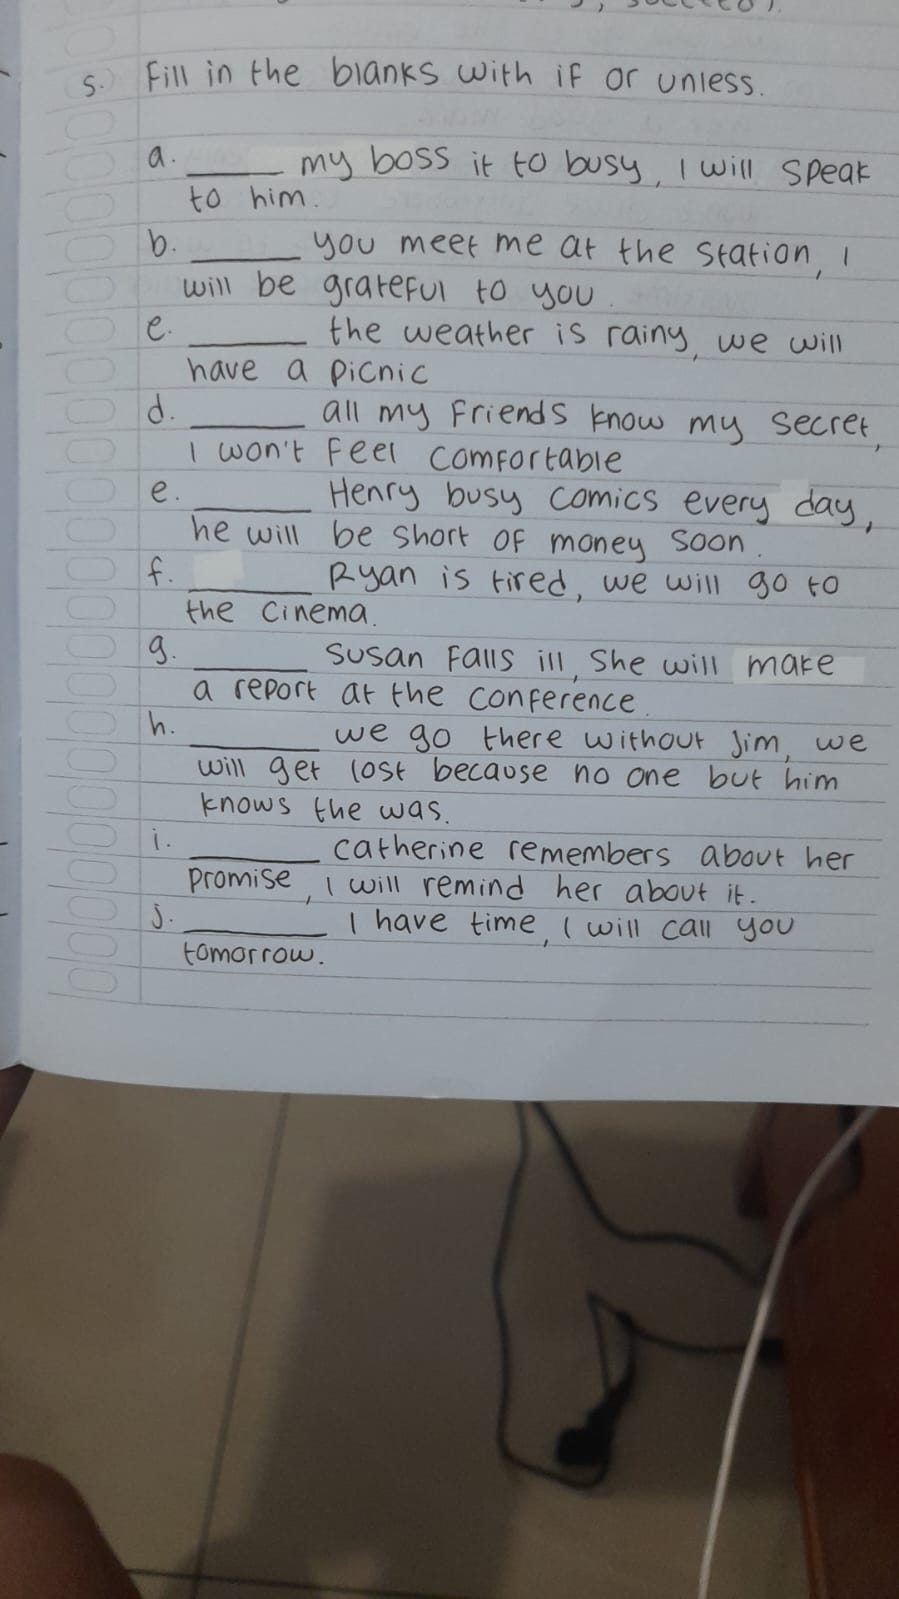 5. Fill in the blanks with if or unless.
a. ______ my boss it to busy, I will speak
to him.
b. ______ you meet me at the station, I
will be grateful to you.
e. ______ the weather is rainy, we will
have a picnic
d. ______ all my friends know my secret,
I won't feel comfortable
e. ______ Henry busy comics every day,
he will be short of money soon.
f. ______ Ryan is tired, we will go to
the cinema.
g. ______ Susan falls ill, she will make
a report at the conference.
h. ______ we go there without Jim, we
will get lost because no one but him
knows the was.
i. ______ catherine remembers about her
promise, I will remind her about it.
j. ______ I have time, I will call you
tomorrow.